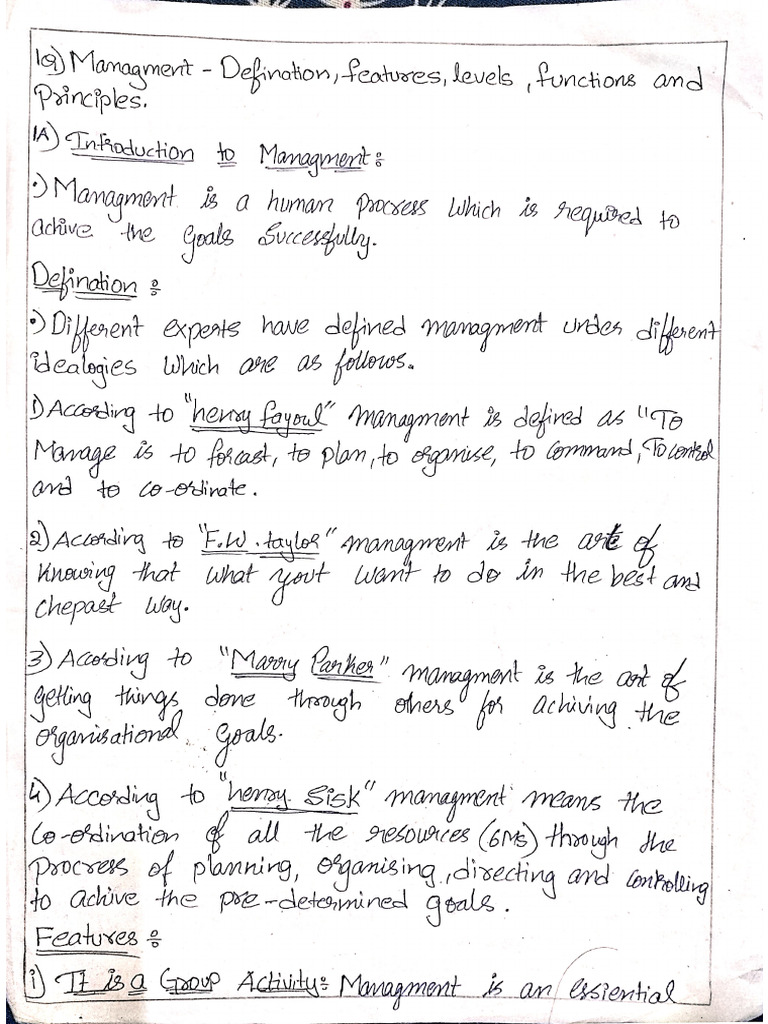 1Q) Managment - Defination, features, levels, functions and
Principles.
1A) Introduction to Managment:
•) Managment is a human process which is required to
achive the Goals Successfully.
Defination:
•) Different experts have defined managment under different
idealogies which are as follows.
1) According to "henry fayoul" managment is defined as "To
Manage is to forcast, to plan, to organise, to command, To control
and to co-ordinate.
2) According to "F.W. taylor" managment is the art of
knowing that what yout want to do in the best and
chepast way.
3) According to "Marry Parker" managment is the art of
getting things done through others for achiving the
organisational goals.
4) According to "henry Sisk" managment means the
co-ordination of all the resources (6Ms) through the
process of planning, organising, directing and controlling
to achive the pre-determined goals.
Features:
i) It is a Group Activity: Managment is an essiential